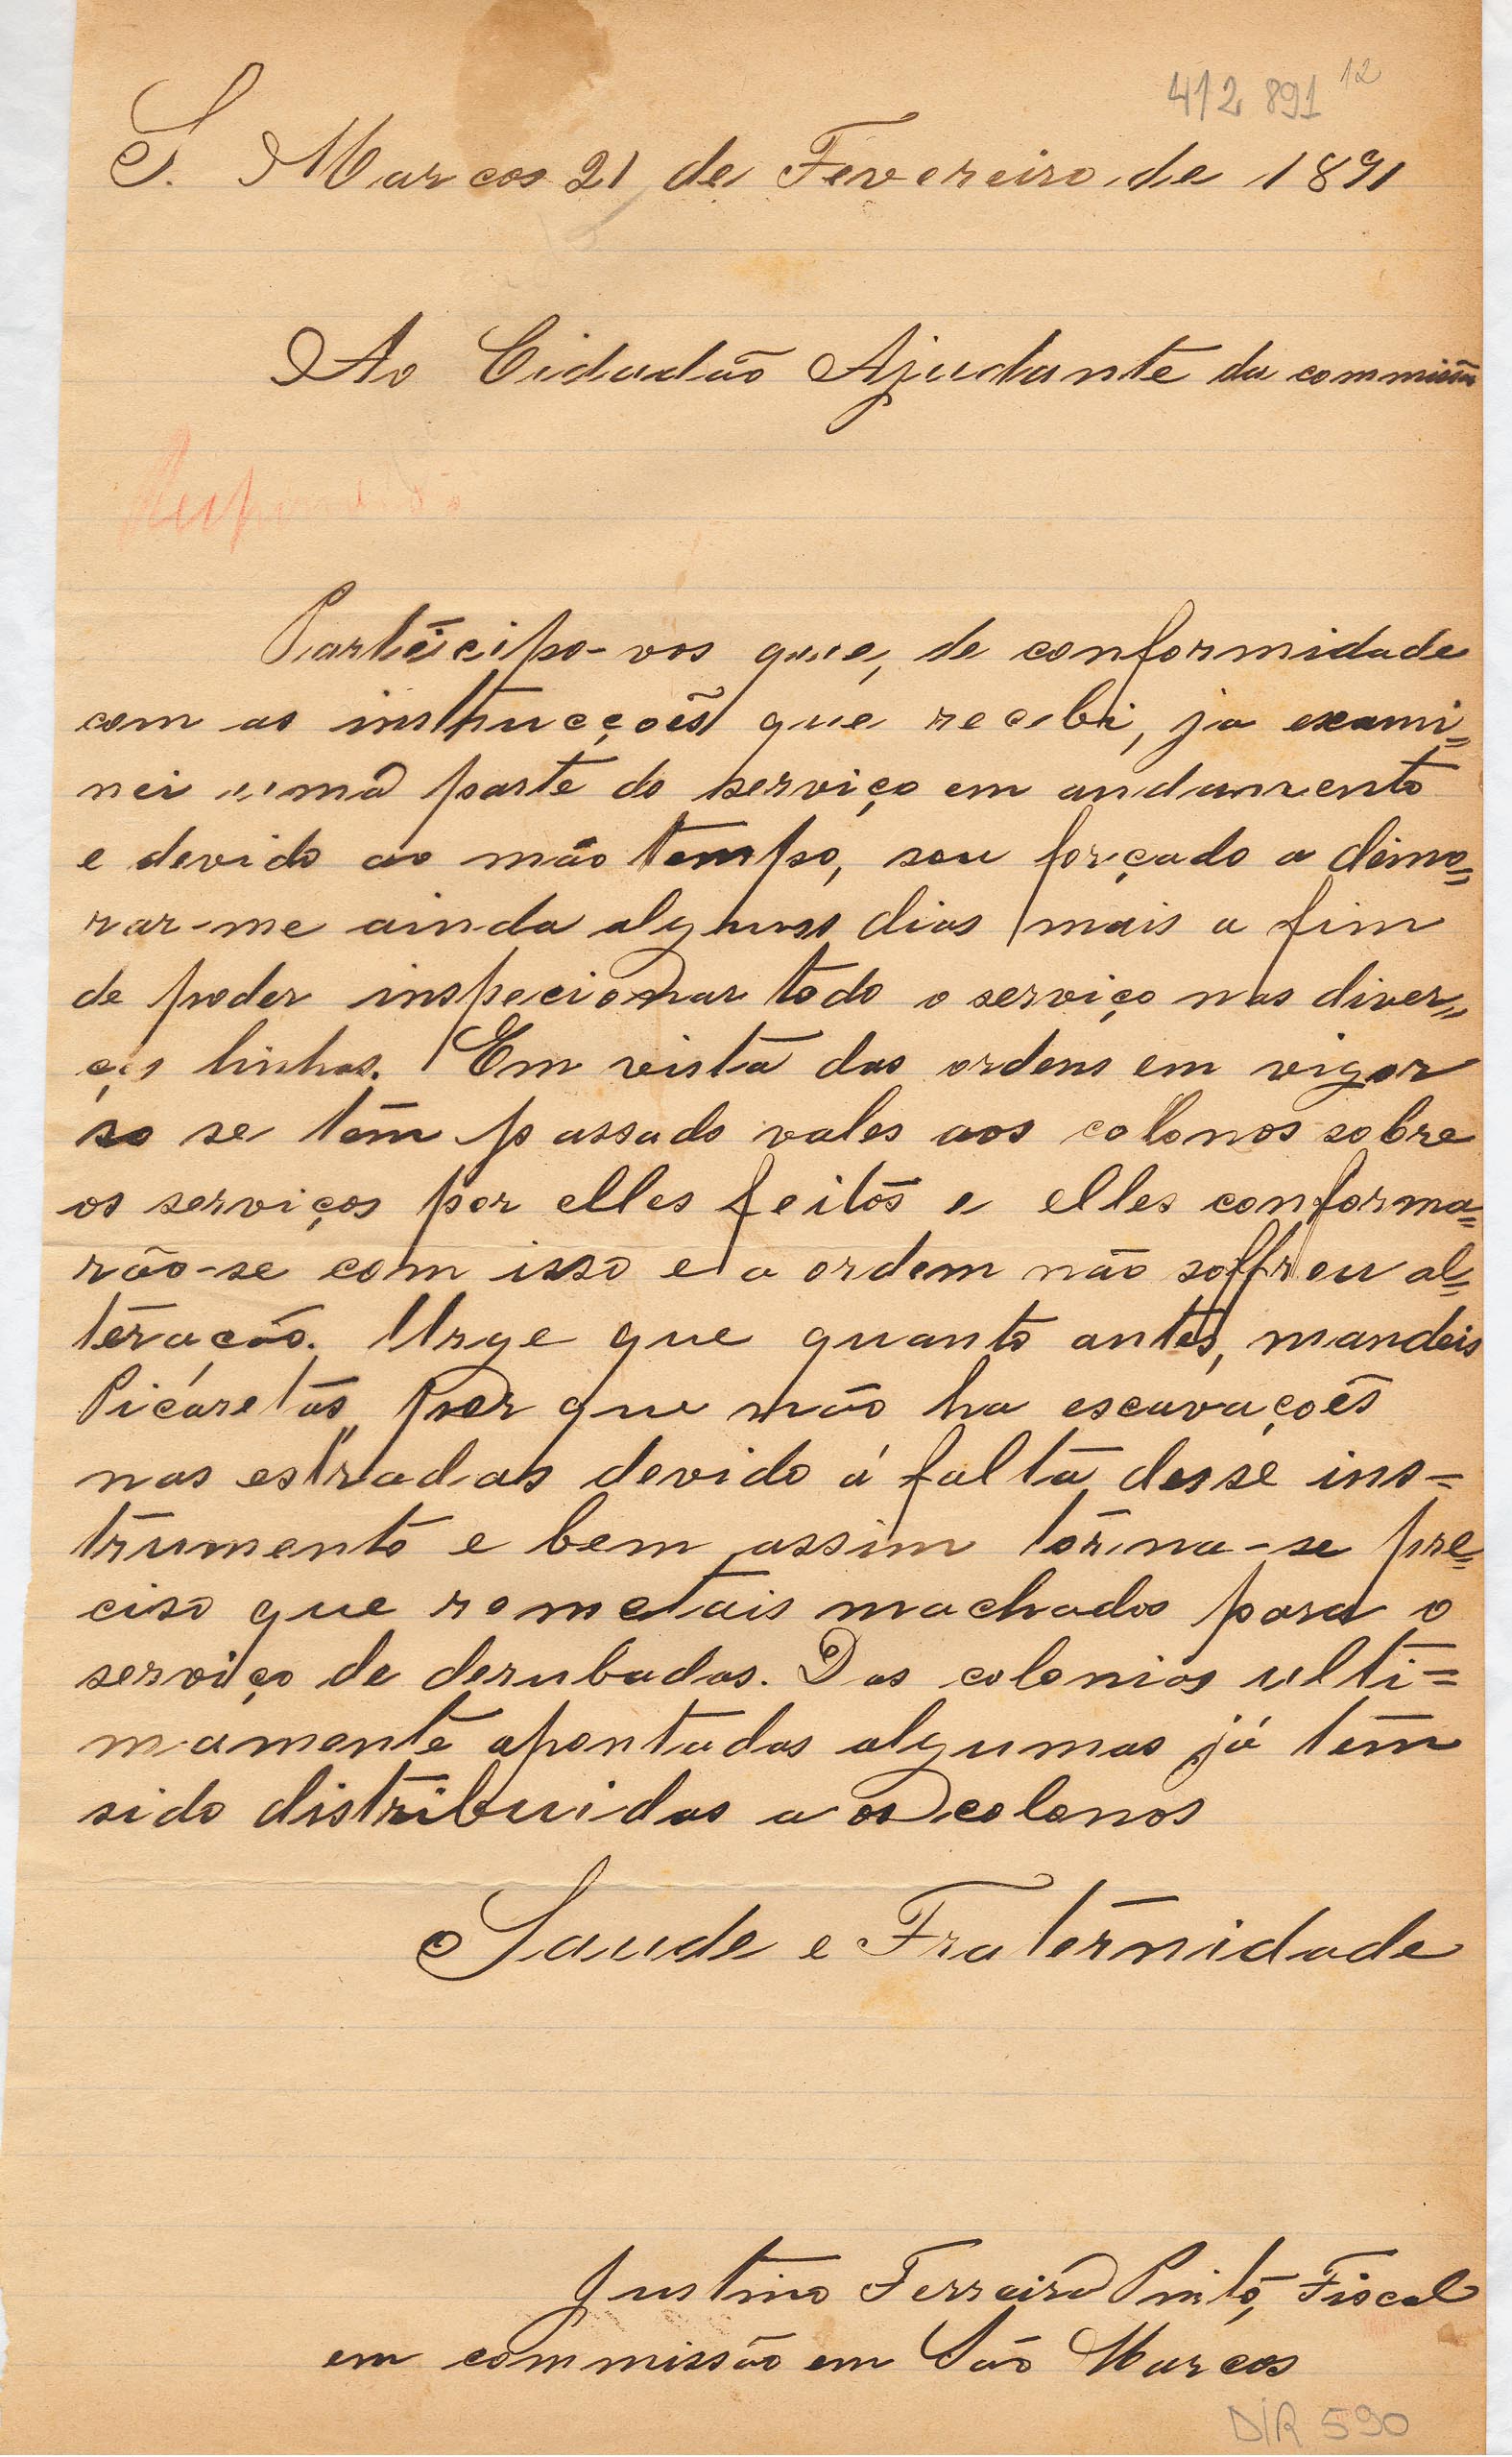 412 891 12
S. Marcos 21 de Fevereiro de 1891
Ao Cidadão Ajudante da commissão
Respondido
Partecipo-vos que, de conformidade
com as instrucções que recebi, ja exami=
nei uma parte do serviço em andamento
e devido ao mão tempo, sou forçado a demo=
rar-me ainda alguns dias mais a fim
de poder inspecionar todo o serviço nas diver=
ças linhas. Em vista das ordens em vigor
so se têm passado vales aos colonos sobre
os serviços por elles feitos e elles conforma=
rão-se com isso e a ordem não soffreu al=
teração. Urge que quanto antes, mandeis
Picaretas, por que não ha escavações
nas estradas devido á falta desse ins=
trumento e bem assim torna-se pre=
ciso que remetais machados para o
serviço de derubadas. Das colonias ulti=
mamente apontadas algumas já têm
sido distribuidas aos colonos
Saude e Fraternidade
Justino Ferreira Pinto, Fiscal
em commissão em São Marcos
DIR 590